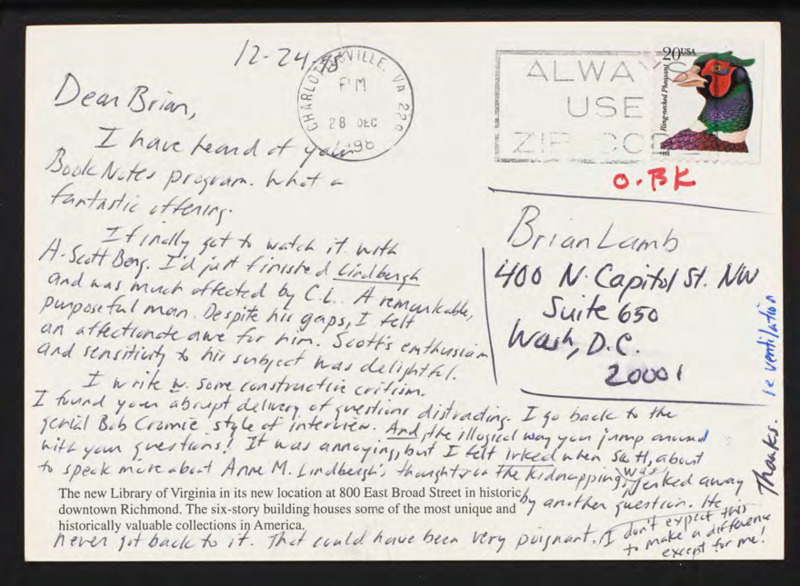 12-24-98
CHARLOTTESVILLE, VA 229
PM
28 DEC
1998
ALWAYS
USE
ZIP CO
20USA
Ring-necked Pheasant
O.BK
Dear Brian,
I have heard of your
BookNotes program. What a
fantastic offering.
I finally got to watch it with
A. Scott Berg. I'd just finished Lindbergh
and was much affected by C.L. A remarkable,
purposeful man. Despite his gaps, I felt
an affectionate awe for him. Scott's enthusiasm
and sensitivity to his subject was delightful.
I write w. some constructive criticism.
I found your abrupt delivery of questions distracting. I go back to the
genial Bob Cromie style of interview. And, the illogical way you jump around
with your questions! It was annoying, but I felt irked when Scott, about
to speak more about Anne M. Lindbergh's thoughts on the kidnapping, was jerked away
by another question. He
never got back to it. That could have been very poignant. I don't expect this
to make a difference
except for me!
Thanks. ie ventilation
Brian Lamb
400 N. Capitol St. NW
Suite 650
Wash, D.C.
20001
The new Library of Virginia in its new location at 800 East Broad Street in historic
downtown Richmond. The six-story building houses some of the most unique and
historically valuable collections in America.